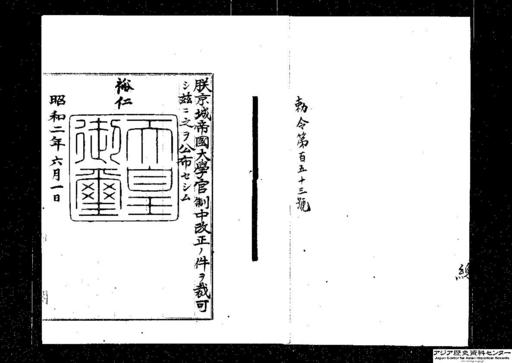 勅令第百五十三號
朕京城帝國大學官制中改正ノ件ヲ裁可
シ茲ニ之ヲ公布セシム
裕仁
天皇御璽
昭和二年六月一日
アジア歴史資料センター
Japan Center for Asian Historical Records